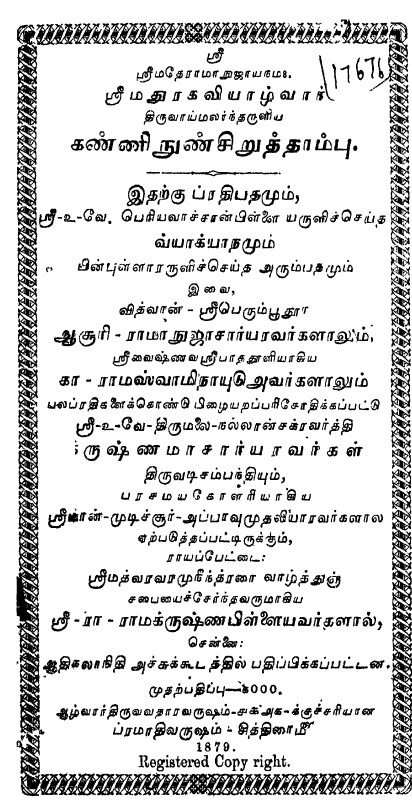 ஸ்ரீ
ஸ்ரீமதேராமாநுஜாயநம:.
17676
ஸ்ரீமதுரகவியாழ்வார்
திருவாய்மலர்ந்தருளிய
கண்ணிநுண்சிறுத்தாம்பு.
இதற்கு ப்ரதிபதமும்,
ஸ்ரீ-உ-வே. பெரியவாச்சான்பிள்ளை யருளிச்செய்த
வ்யாக்யாநமும்
பின்புள்ளாரருளிச்செய்த அரும்பதமும்
இவை,
வித்வான் - ஸ்ரீபெரும்பூதூர்
ஆசூரி - ராமாநுஜாசார்யரவர்களாலும்,
ஸ்ரீவைஷ்ணவஸ்ரீபாததூளியாகிய
கா - ராமஸ்வாமிநாயுடுஅவர்களாலும்
பலப்ரதிகளைக்கொண்டு பிழையறப்பரிசோதிக்கப்பட்டு
ஸ்ரீ-உ-வே-திருமலை-நல்லான்சக்ரவர்த்தி
க்ருஷ்ணமாசார்யரவர்கள்
திருவடிசம்பந்தியும்,
பரசமயகோளரியாகிய
முடிச்சூர்-அப்பாவுமுதலியாரவர்களால்
ஏற்படுத்தப்பட்டிருக்கும்,
ராயப்பேட்டை:
ஸ்ரீமத்வரவரமுநீந்த்ரரை வாழ்த்துஞ்
சபையைச்சேர்ந்தவருமாகிய
ஸ்ரீ - ரா - ராமக்ருஷ்ணபிள்ளையவர்களால்,
சென்னை:
ஆதிகலாநிதி அச்சுக்கூடத்தில் பதிப்பிக்கப்பட்டன.
முதற்பதிப்பு—
ஆழ்வார்திருவவதாரவருஷம்-க்குச்சரியான
ப்ரமாதிவருஷம் - சித்திரைமீ
1879.
Registered Copy right.